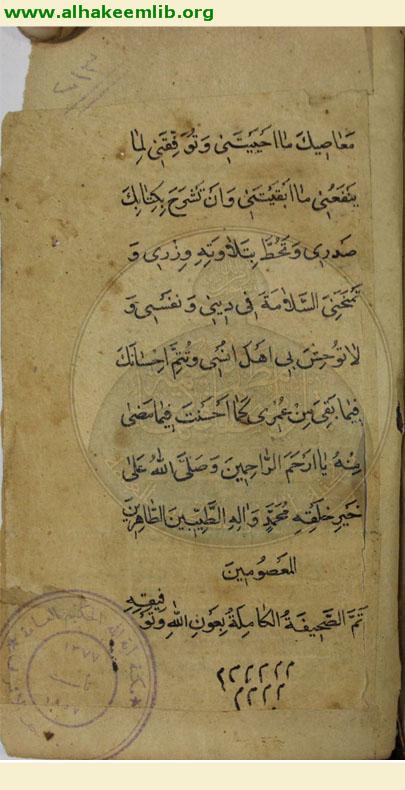 www.alhakeemlib.org
مَعَاصِيكَ مَا اَحْيَيْتَنِي وَتُوَفِّقَنِي لِمَا
يَنْفَعُنِي مَا اَبْقَيْتَنِي وَاَنْ تَشْرَحَ بِكِتَابِكَ
صَدْرِي وَتَحُطَّ بِتِلَاوَتِهِ وِزْرِي وَ
تَمْنَحَنِيَ السَّلَامَةَ فِي دِينِي وَنَفْسِي وَ
لَا تُوحِشَ بِي اَهْلَ اُنْسِي وَتُتِمَّ اِحْسَانَكَ
فِيمَا بَقِيَ مِنْ عُمْرِي كَمَا اَحْسَنْتَ فِيمَا مَضَى
مِنْهُ يَا اَرْحَمَ الرَّاحِمِينَ وَصَلَّى اللهُ عَلَى
خَيْرِ خَلْقِهِ مُحَمَّدٍ وَالِهِ الطَّيِّبِينَ الطَّاهِرِينَ
المَعصُومِينَ
تَمَّ الصَّحِيفَةُ الكَامِلَةُ بِعَونِ اللهِ وَتَوْفِيقِهِ
مكتبة آية الله الحكيم العامة
١٣٧٧